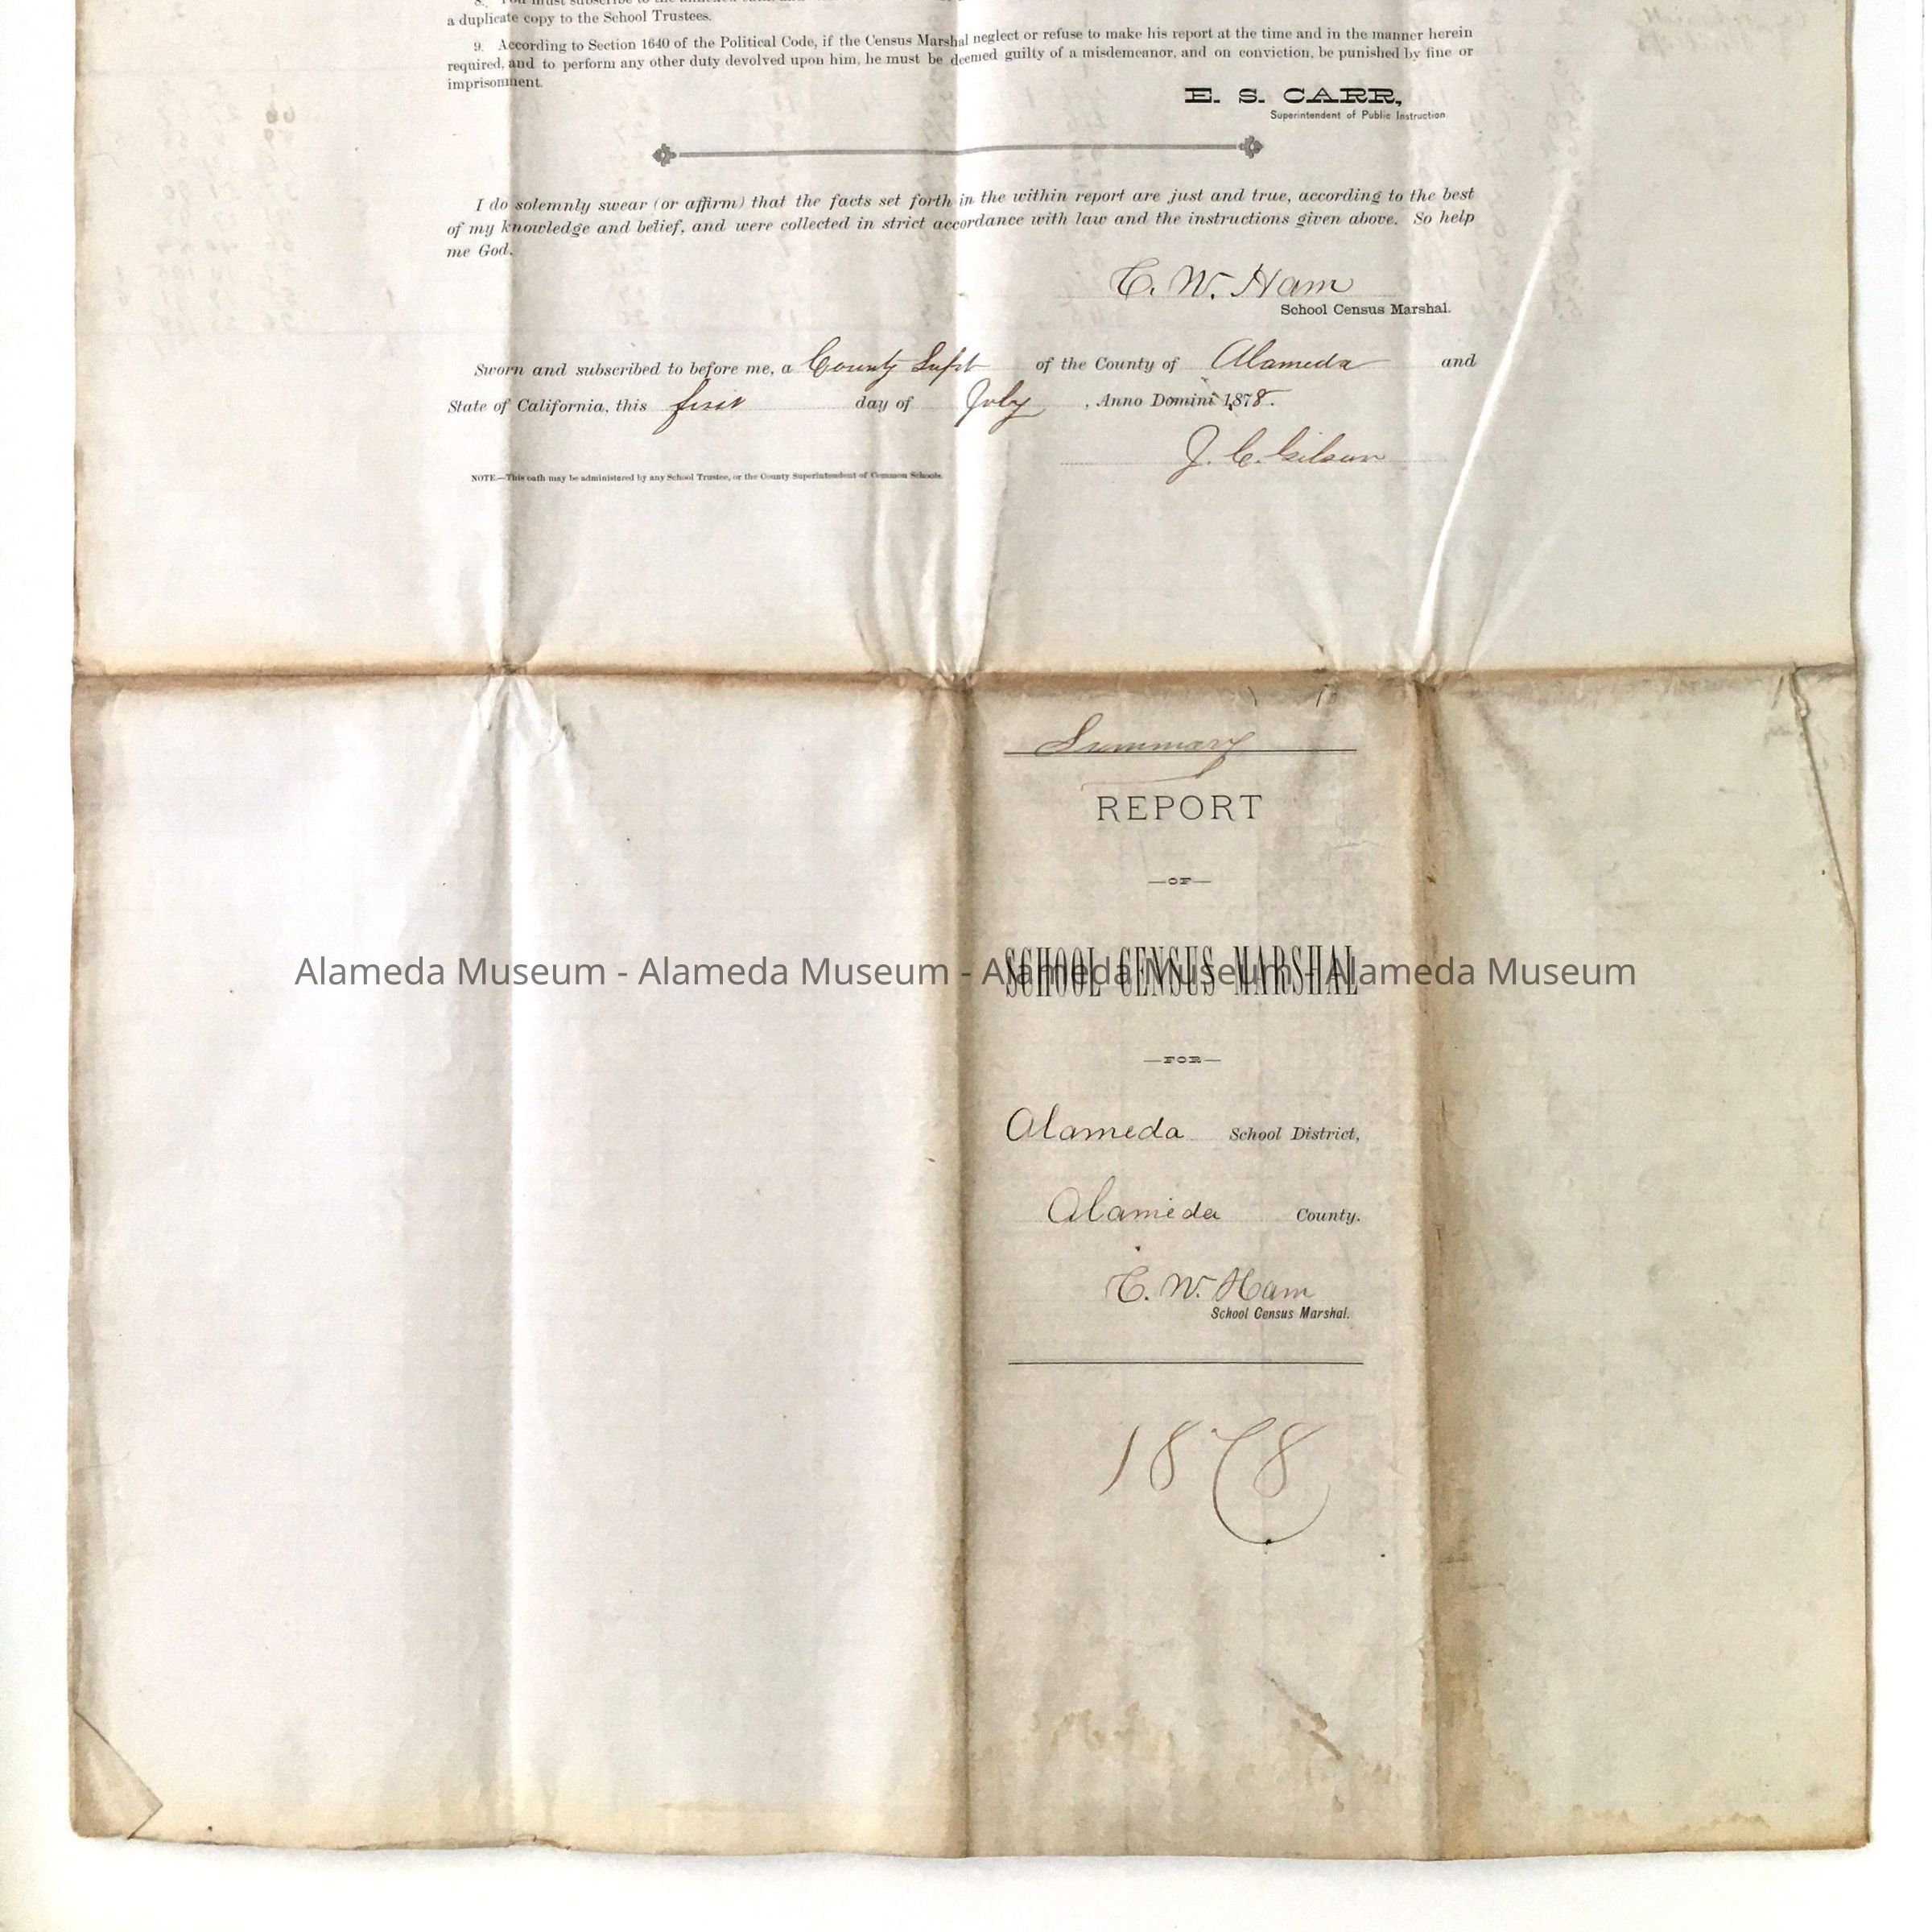 8. You must subscribe to the annexed oath, and
a duplicate copy to the School Trustees.
9. According to Section 1640 of the Political Code, if the Census Marshal neglect or refuse to make his report at the time and in the manner herein
required, and to perform any other duty devolved upon him, he must be deemed guilty of a misdemeanor, and on conviction, be punished by fine or
imprisonment.
E. S. CARR,
Superintendent of Public Instruction
I do solemnly swear (or affirm) that the facts set forth in the within report are just and true, according to the best
of my knowledge and belief, and were collected in strict accordance with law and the instructions given above. So help
me God.
C. W. Ham
School Census Marshal.
Sworn and subscribed to before me, a County Supt of the County of Alameda and
State of California, this first day of July, Anno Domini 1878.
J. C. Gilson
NOTE.—This oath may be administered by any School Trustee, or the County Superintendent of Common Schools.
Summary
REPORT
—OF—
SCHOOL CENSUS MARSHAL
Alameda Museum - Alameda Museum - Alameda Museum - Alameda Museum
—FOR—
Alameda School District,
Alameda County.
C. W. Ham
School Census Marshal.
1878